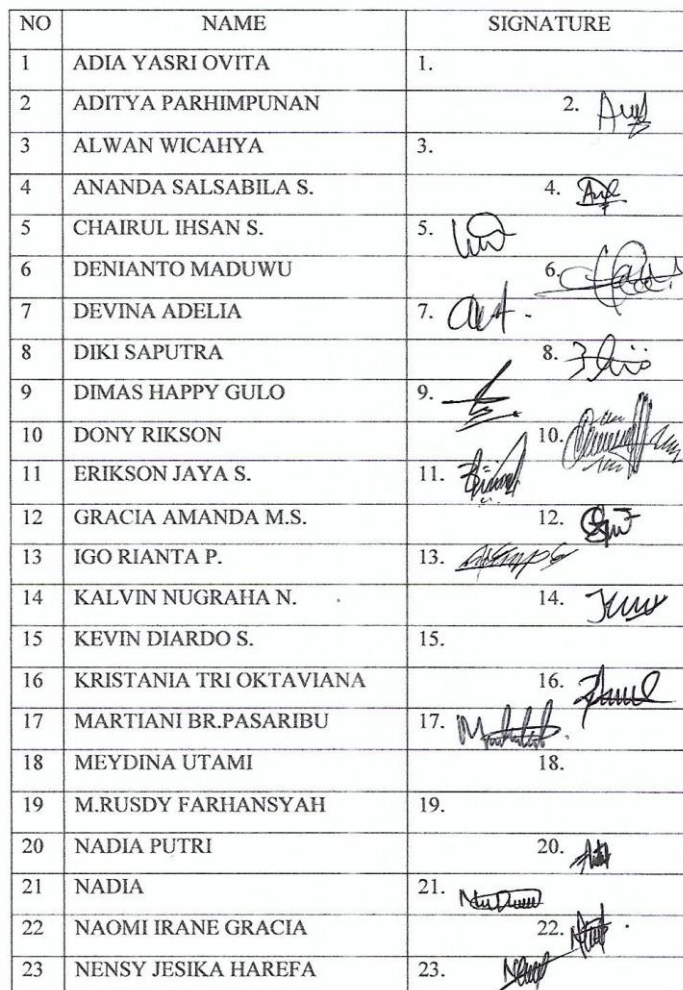 NO NAME SIGNATURE
1 ADIA YASRI OVITA 1.
2 ADITYA PARHIMPUNAN 2.
3 ALWAN WICAHYA 3.
4 ANANDA SALSABILA S. 4.
5 CHAIRUL IHSAN S. 5.
6 DENIANTO MADUWU 6.
7 DEVINA ADELIA 7.
8 DIKI SAPUTRA 8.
9 DIMAS HAPPY GULO 9.
10 DONY RIKSON 10.
11 ERIKSON JAYA S. 11.
12 GRACIA AMANDA M.S. 12.
13 IGO RIANTA P. 13.
14 KALVIN NUGRAHA N. 14.
15 KEVIN DIARDO S. 15.
16 KRISTANIA TRI OKTAVIANA 16.
17 MARTIANI BR.PASARIBU 17.
18 MEYDINA UTAMI 18.
19 M.RUSDY FARHANSYAH 19.
20 NADIA PUTRI 20.
21 NADIA 21.
22 NAOMI IRANE GRACIA 22.
23 NENSY JESIKA HAREFA 23.